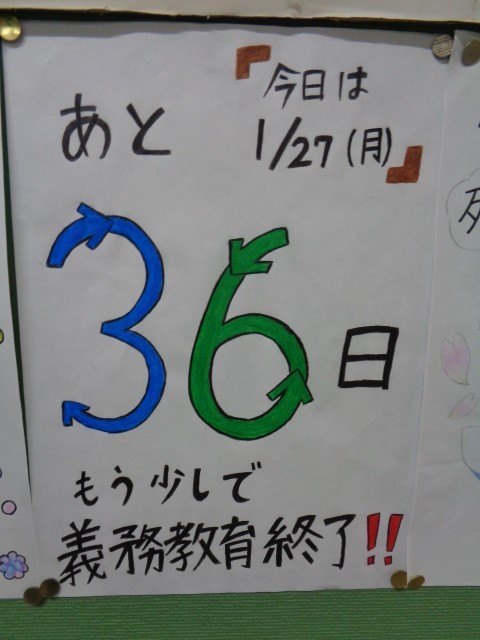 『今日は
1/27(月)』
あと
36日
もう少しで
義務教育終了!!